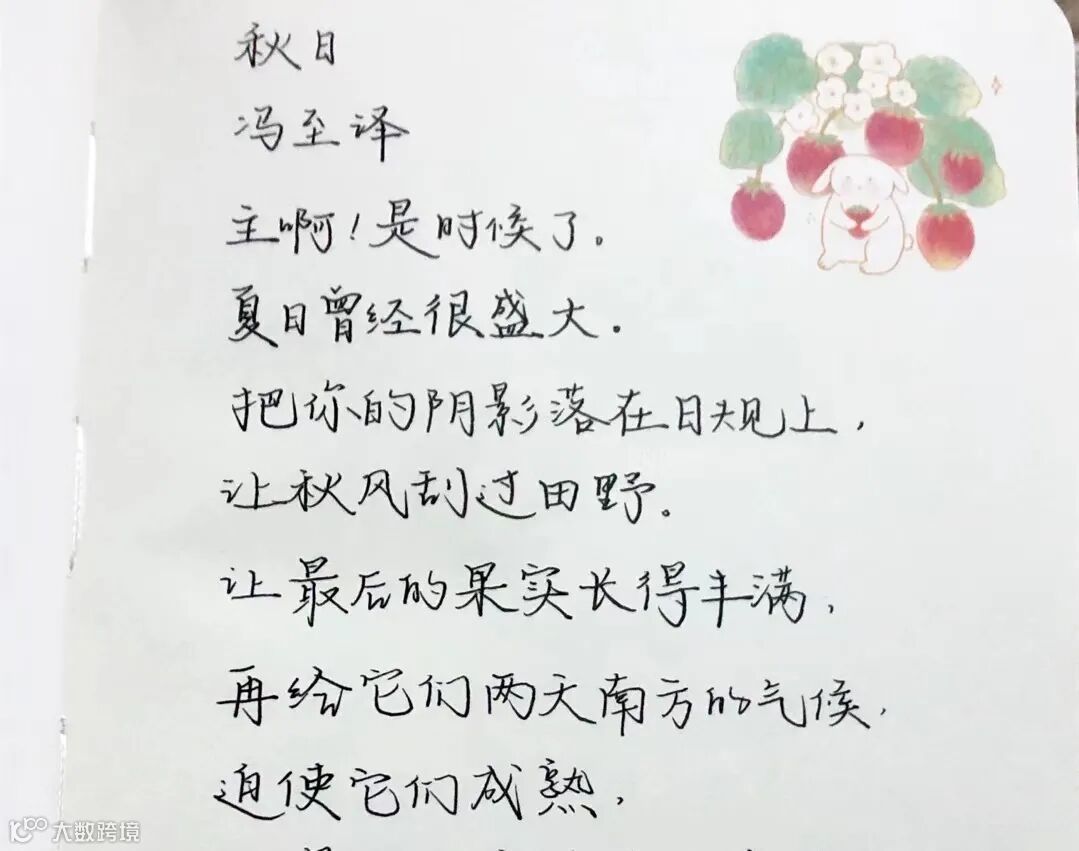 秋日
冯至译
主啊！是时候了。
夏日曾经很盛大。
把你的阴影落在日规上，
让秋风刮过田野。
让最后的果实长得丰满，
再给它们两天南方的气候，
迫使它们成熟，
大数跨境